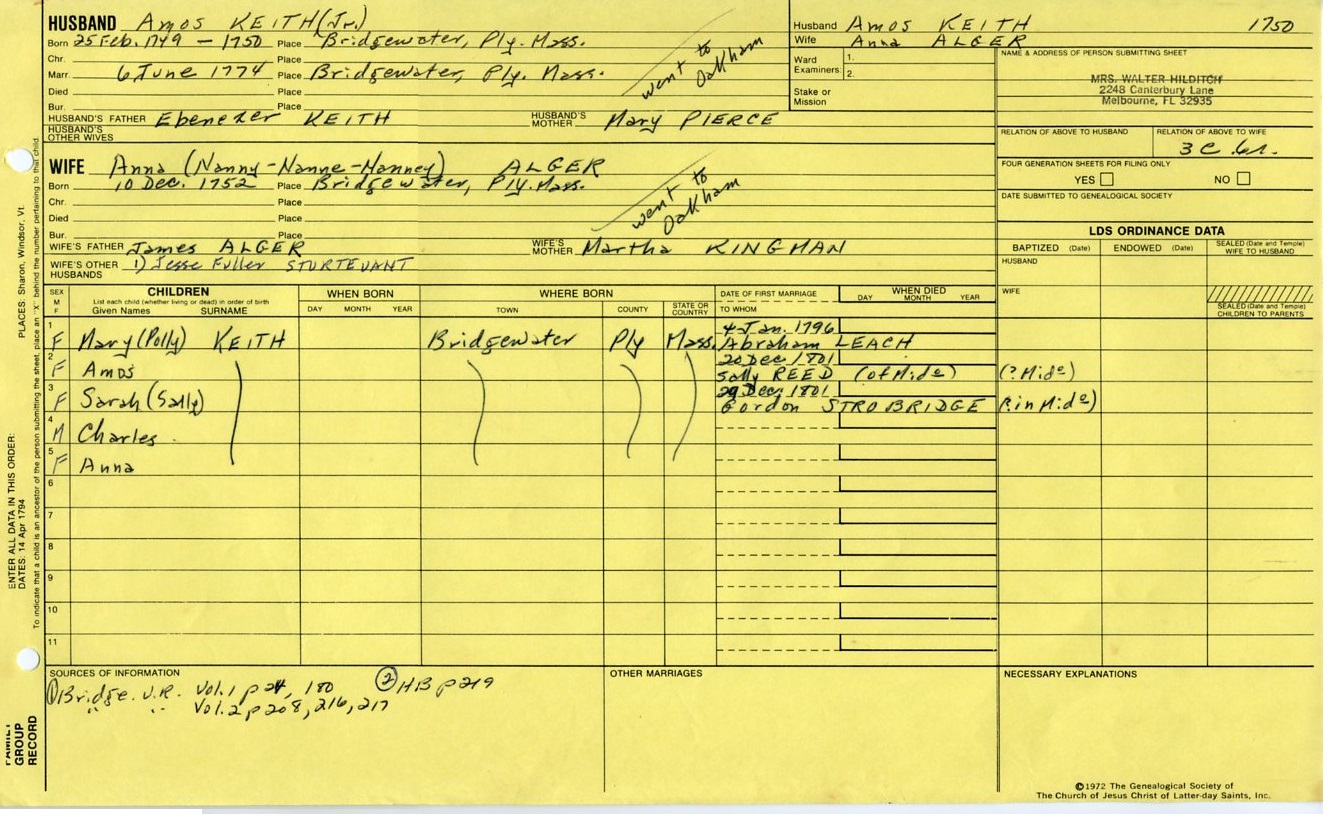 HUSBAND Amos KEITH (Jr.)
Born 25 Feb. 1749 – 1750 Place Bridgewater, Ply. Mass.
Chr. Place
Marr. 6 June 1774 Place Bridgewater, Ply. Mass.
Died Place
Bur. Place
went to Oakham
HUSBAND'S FATHER Ebenezer KEITH HUSBAND'S MOTHER Mary PIERCE
HUSBAND'S OTHER WIVES
Husband Amos KEITH 1750
Wife Anna ALGER
Ward Examiners: 1.
2.
Stake or Mission
NAME & ADDRESS OF PERSON SUBMITTING SHEET
MRS. WALTER HILDITCH
2248 Canterbury Lane
Melbourne, FL 32935
RELATION OF ABOVE TO HUSBAND RELATION OF ABOVE TO WIFE
3 C 6r.
FOUR GENERATION SHEETS FOR FILING ONLY
YES NO
DATE SUBMITTED TO GENEALOGICAL SOCIETY
WIFE Anna (Nanny-Nanne-Hanney) ALGER
Born 10 Dec. 1752 Place Bridgewater, Ply. Mass.
Chr. Place
Died Place
Bur. Place
went to Oakham
WIFE'S FATHER James ALGER WIFE'S MOTHER Martha KINGMAN
WIFE'S OTHER HUSBANDS 1) Jesse Fuller STURTEVANT
LDS ORDINANCE DATA
BAPTIZED (Date) ENDOWED (Date) SEALED (Date and Temple) WIFE TO HUSBAND
HUSBAND
WIFE
SEALED (Date and Temple) CHILDREN TO PARENTS
SEX M F CHILDREN List each child (whether living or dead) in order of birth Given Names SURNAME WHEN BORN DAY MONTH YEAR WHERE BORN TOWN COUNTY STATE OR COUNTRY DATE OF FIRST MARRIAGE TO WHOM WHEN DIED DAY MONTH YEAR
1 F Mary (Polly) KEITH Bridgewater Ply Mass. 4 Jan. 1796 Abraham LEACH
2 F Amos 20 Dec 1801 Sally REED (of Midᵉ) (? Midᵉ)
3 F Sarah (Sally) 29 Dec. 1801 Gordon STROBRIDGE (? in Midᵉ)
4 M Charles
5 F Anna
6
7
8
9
10
11
SOURCES OF INFORMATION
① Bridge. V.R. Vol. 1 p 24, 180 ② HB p 219
" " Vol. 2 p 208, 216, 217
OTHER MARRIAGES
NECESSARY EXPLANATIONS
©1972 The Genealogical Society of
The Church of Jesus Christ of Latter-day Saints, Inc.
ENTER ALL DATA IN THIS ORDER:
DATES: 14 Apr 1794
PLACES: Sharon, Windsor, Vt.
To indicate that a child is an ancestor of the person submitting the sheet, place an "X" behind the number pertaining to that child.
FAMILY GROUP RECORD